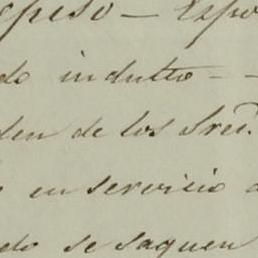 epeso — Espo
do indulto - -
den de los Sres.
en servicio
do se saquen